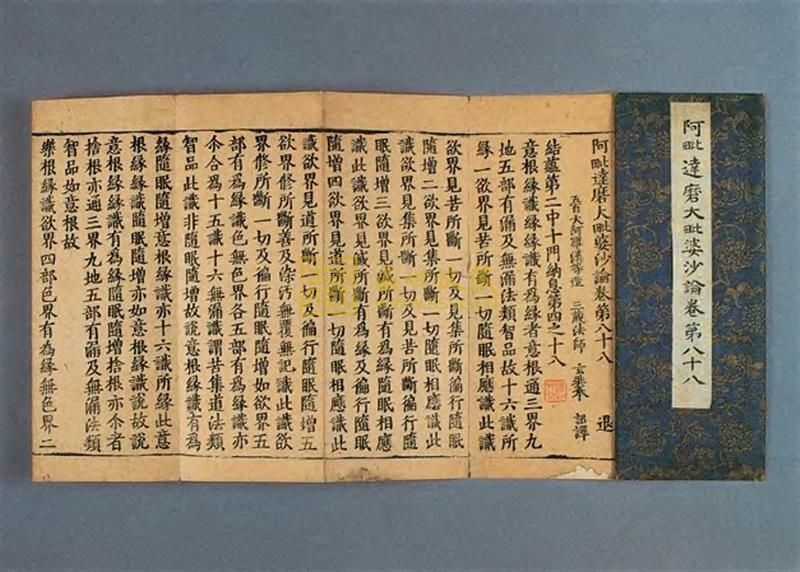 阿毗達磨大毗婆沙論卷第八十八
阿毗達磨大毗婆沙論卷第八十八 退
五百大阿羅漢等造 三藏法師 玄奘奉 詔譯
結蘊第二中十門納息第四之十八
意根緣識緣緣識有為緣者意根通三界九
地五部有漏及無漏法類智品故十六識所
緣一欲界見苦所斷一切隨眠相應識此識
欲界見苦所斷一切及見集所斷徧行隨眠
隨增二欲界見集所斷一切隨眠相應識此
識欲界見集所斷一切及見苦所斷徧行隨
眠隨增三欲界見滅所斷有為緣隨眠相應
識此識欲界見滅所斷有為緣及徧行隨眠
隨增四欲界見道所斷一切隨眠相應識此
識欲界見道所斷一切及徧行隨眠隨增五
欲界修所斷善及染污無覆無記識此識欲
界修所斷一切及徧行隨眠隨增如欲界五
部有為緣識色無色界各五部有為緣識亦
尒合為十五識十六無漏識謂苦集道法類
智品此識非隨眠隨增故說意根緣識有為
緣隨眠隨增意根緣識亦十六識所緣此意
根緣緣識隨眠隨增亦如意根緣識說故說
意根緣緣識有為緣隨眠隨增捨根亦尒者
捨根亦通三界九地五部有漏及無漏法類
智品如意根故
樂根緣識欲界四部色界有為緣無色界二